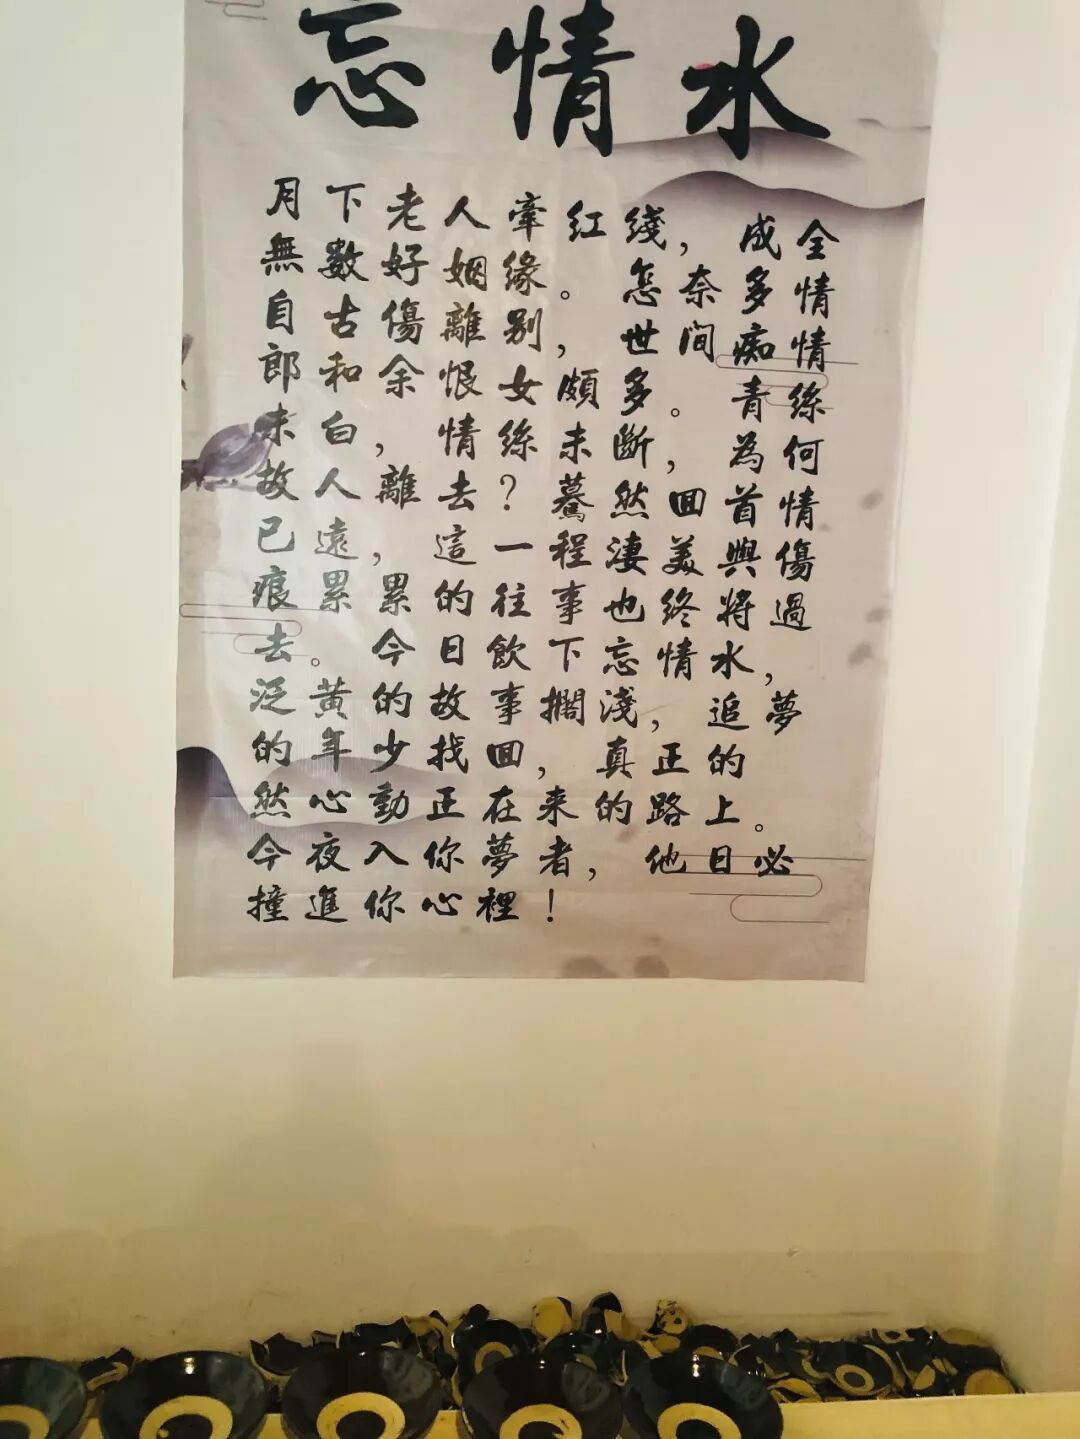 忘情水
月下老人牽红綫，成全
無數好姻缘。怎奈多情
自古傷離别，世间痴情
郎和余恨女頗多。青絲
未白，情絲未斷，為何
故人離去？驀然回首情
已遠，這一程淒美與傷
痕累累的往事也终將過
去。今日飲下忘情水，
泛黄的故事擱淺，追夢
的年少找回，真正的
然心動正在来的路上。
今夜入你夢者，他日必
撞進你心裡！